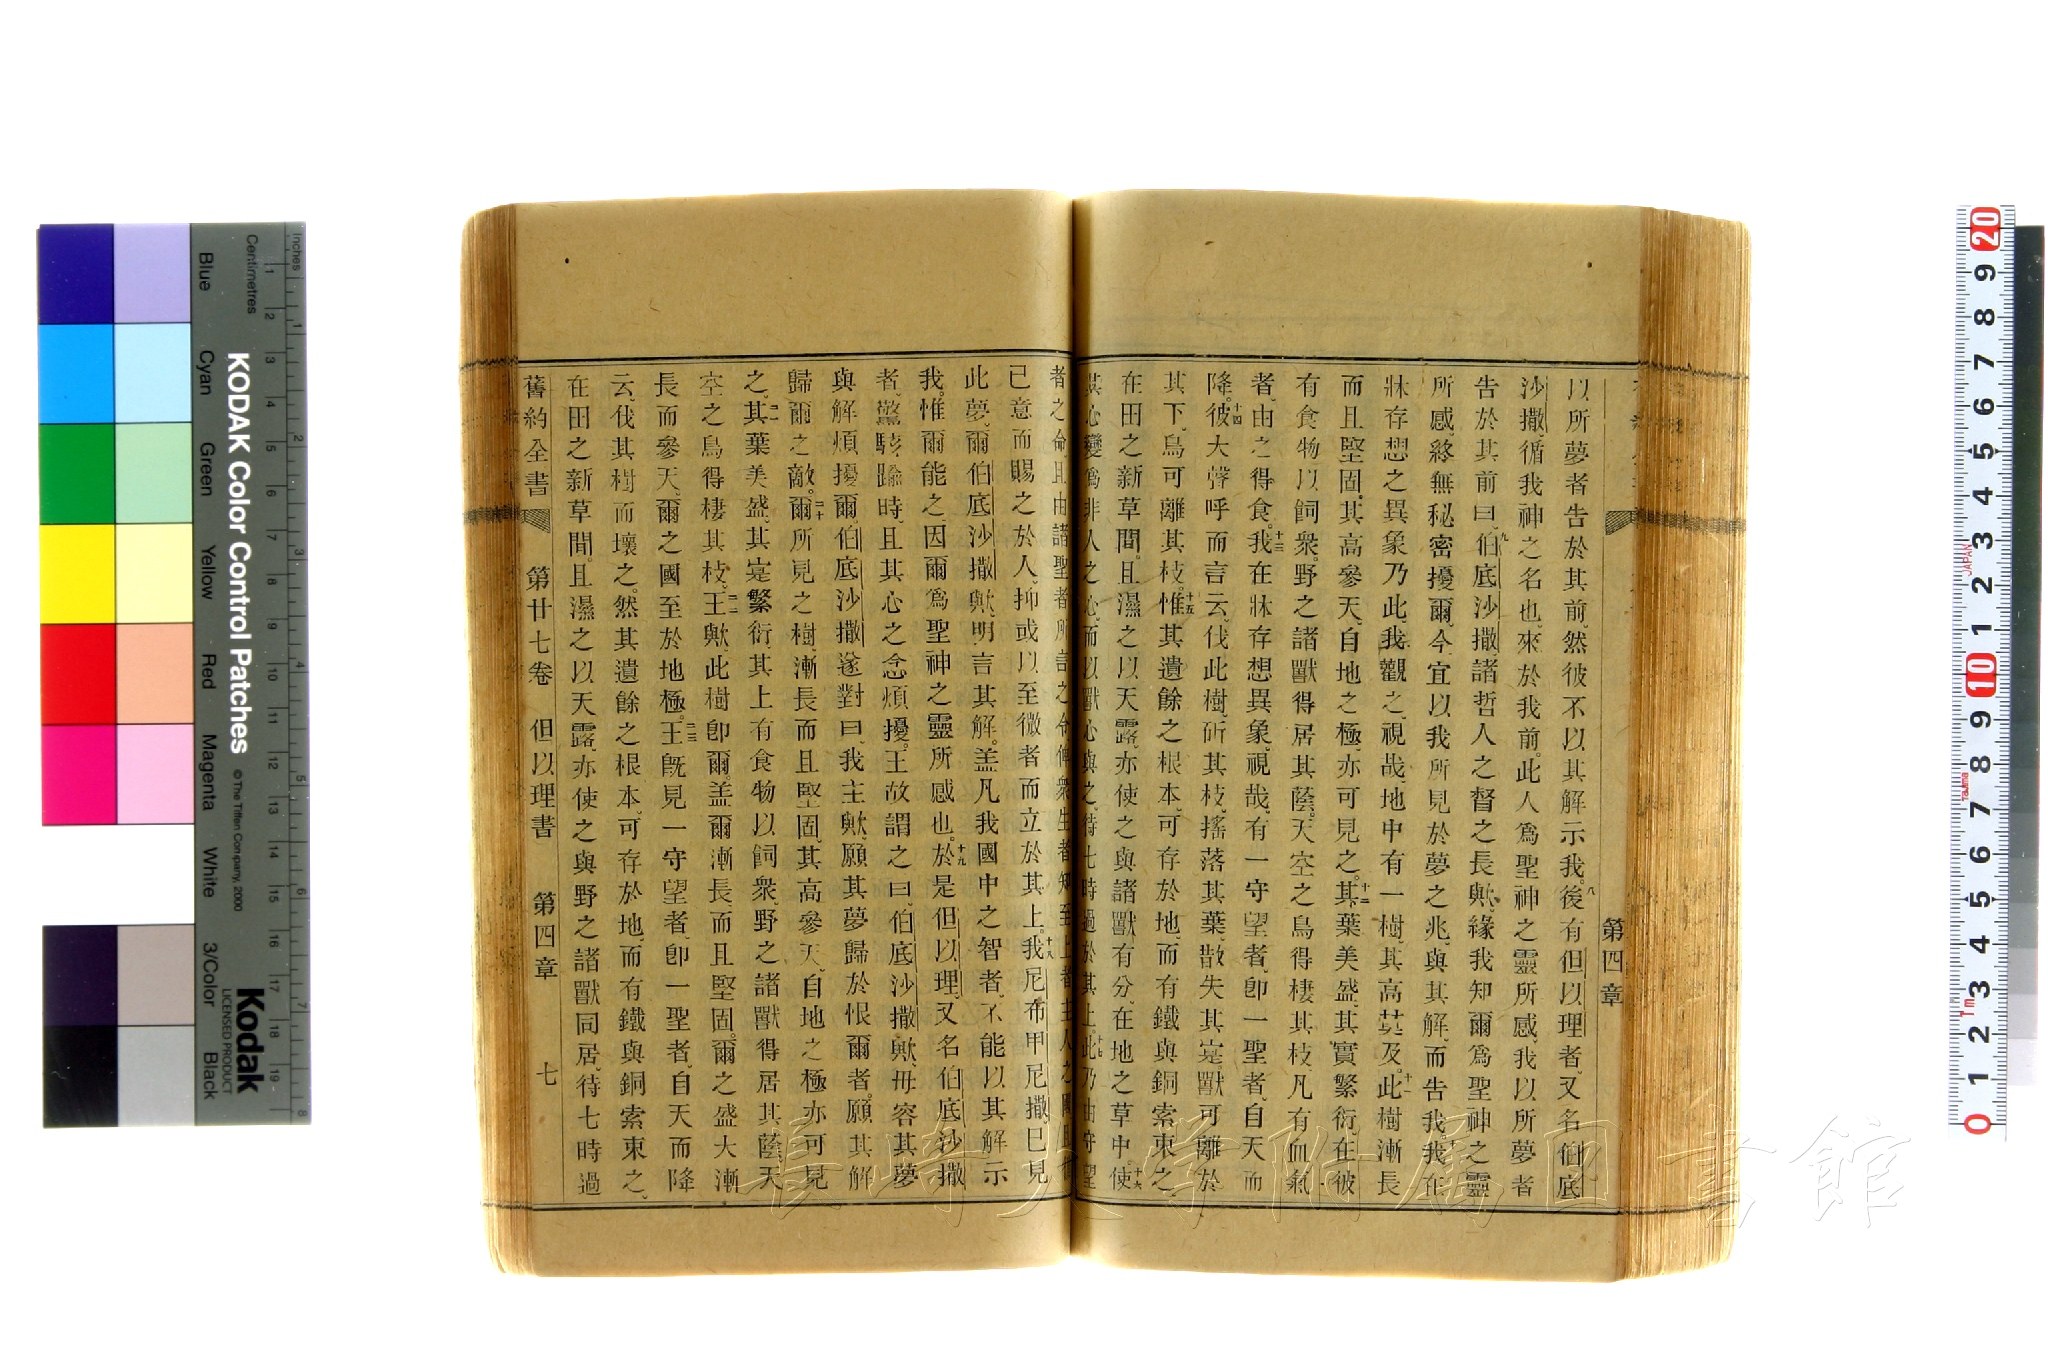 第四章
以所夢者告於其前然彼不以其解示我八後有但以理者又名伯底
沙撒循我神之名也來於我前此人爲聖神之靈所感我以所夢者
告於其前曰九伯底沙撒諸哲人之督之長歟緣我知爾爲聖神之靈
所感終無秘密擾爾今宜以我所見於夢之兆與其解而告我十我在
牀存想之異象乃此我觀之視哉地中有一樹其高莫及十一此樹漸長
而且堅固其高參天自地之極亦可見之十二其葉美盛其實繁衍在彼
有食物以飼衆野之諸獸得居其蔭天空之鳥得棲其枝凡有血氣
者由之得食十三我在牀存想異象視哉有一守望者卽一聖者自天而
降十四彼大聲呼而言云伐此樹斫其枝搖落其葉散失其寔獸可離於
其下鳥可離其枝十五惟其遺餘之根本可存於地而有鐵與銅索束之
在田之新草間且濕之以天露亦使之與諸獸有分在地之草中十六使
其心變爲非人之心而以獸心與之待七時過於其上十七此乃由守望
者之命且由諸聖者所言之令俾衆生者知至上者主人之國且循
己意而賜之於人抑或以至微者而立於其上十八我尼布甲尼撒已見
此夢爾伯底沙撒歟明言其解盖凡我國中之智者不能以其解示
我惟爾能之因爾爲聖神之靈所感也十九於是但以理又名伯底沙撒
者驚駭踰時且其心之念煩擾王故謂之曰伯底沙撒歟毋容其夢
與解煩擾爾伯底沙撒遂對曰我主歟願其夢歸於恨爾者願其解
歸爾之敵二十爾所見之樹漸長而且堅固其高參天自地之極亦可見
之二一其葉美盛其寔繁衍其上有食物以飼衆野之諸獸得居其蔭天
空之鳥得棲其枝二二王歟此樹卽爾盖爾漸長而且堅固爾之盛大漸
長而參天爾之國至於地極二三王旣見一守望者卽一聖者自天而降
云伐其樹而壞之然其遺餘之根本可存於地而有鐵與銅索束之
在田之新草間且濕之以天露亦使之與野之諸獸同居待七時過
舊約全書 第廿七卷 但以理書 第四章 七
長崎大学附属図書館
KODAK Color Control Patches
© The Tiffen Company, 2000
Kodak
LICENSED PRODUCT
Inches
Centimetres
Blue
Cyan
Green
Yellow
Red
Magenta
White
3/Color
Black
JAPAN
TaJima
Tm